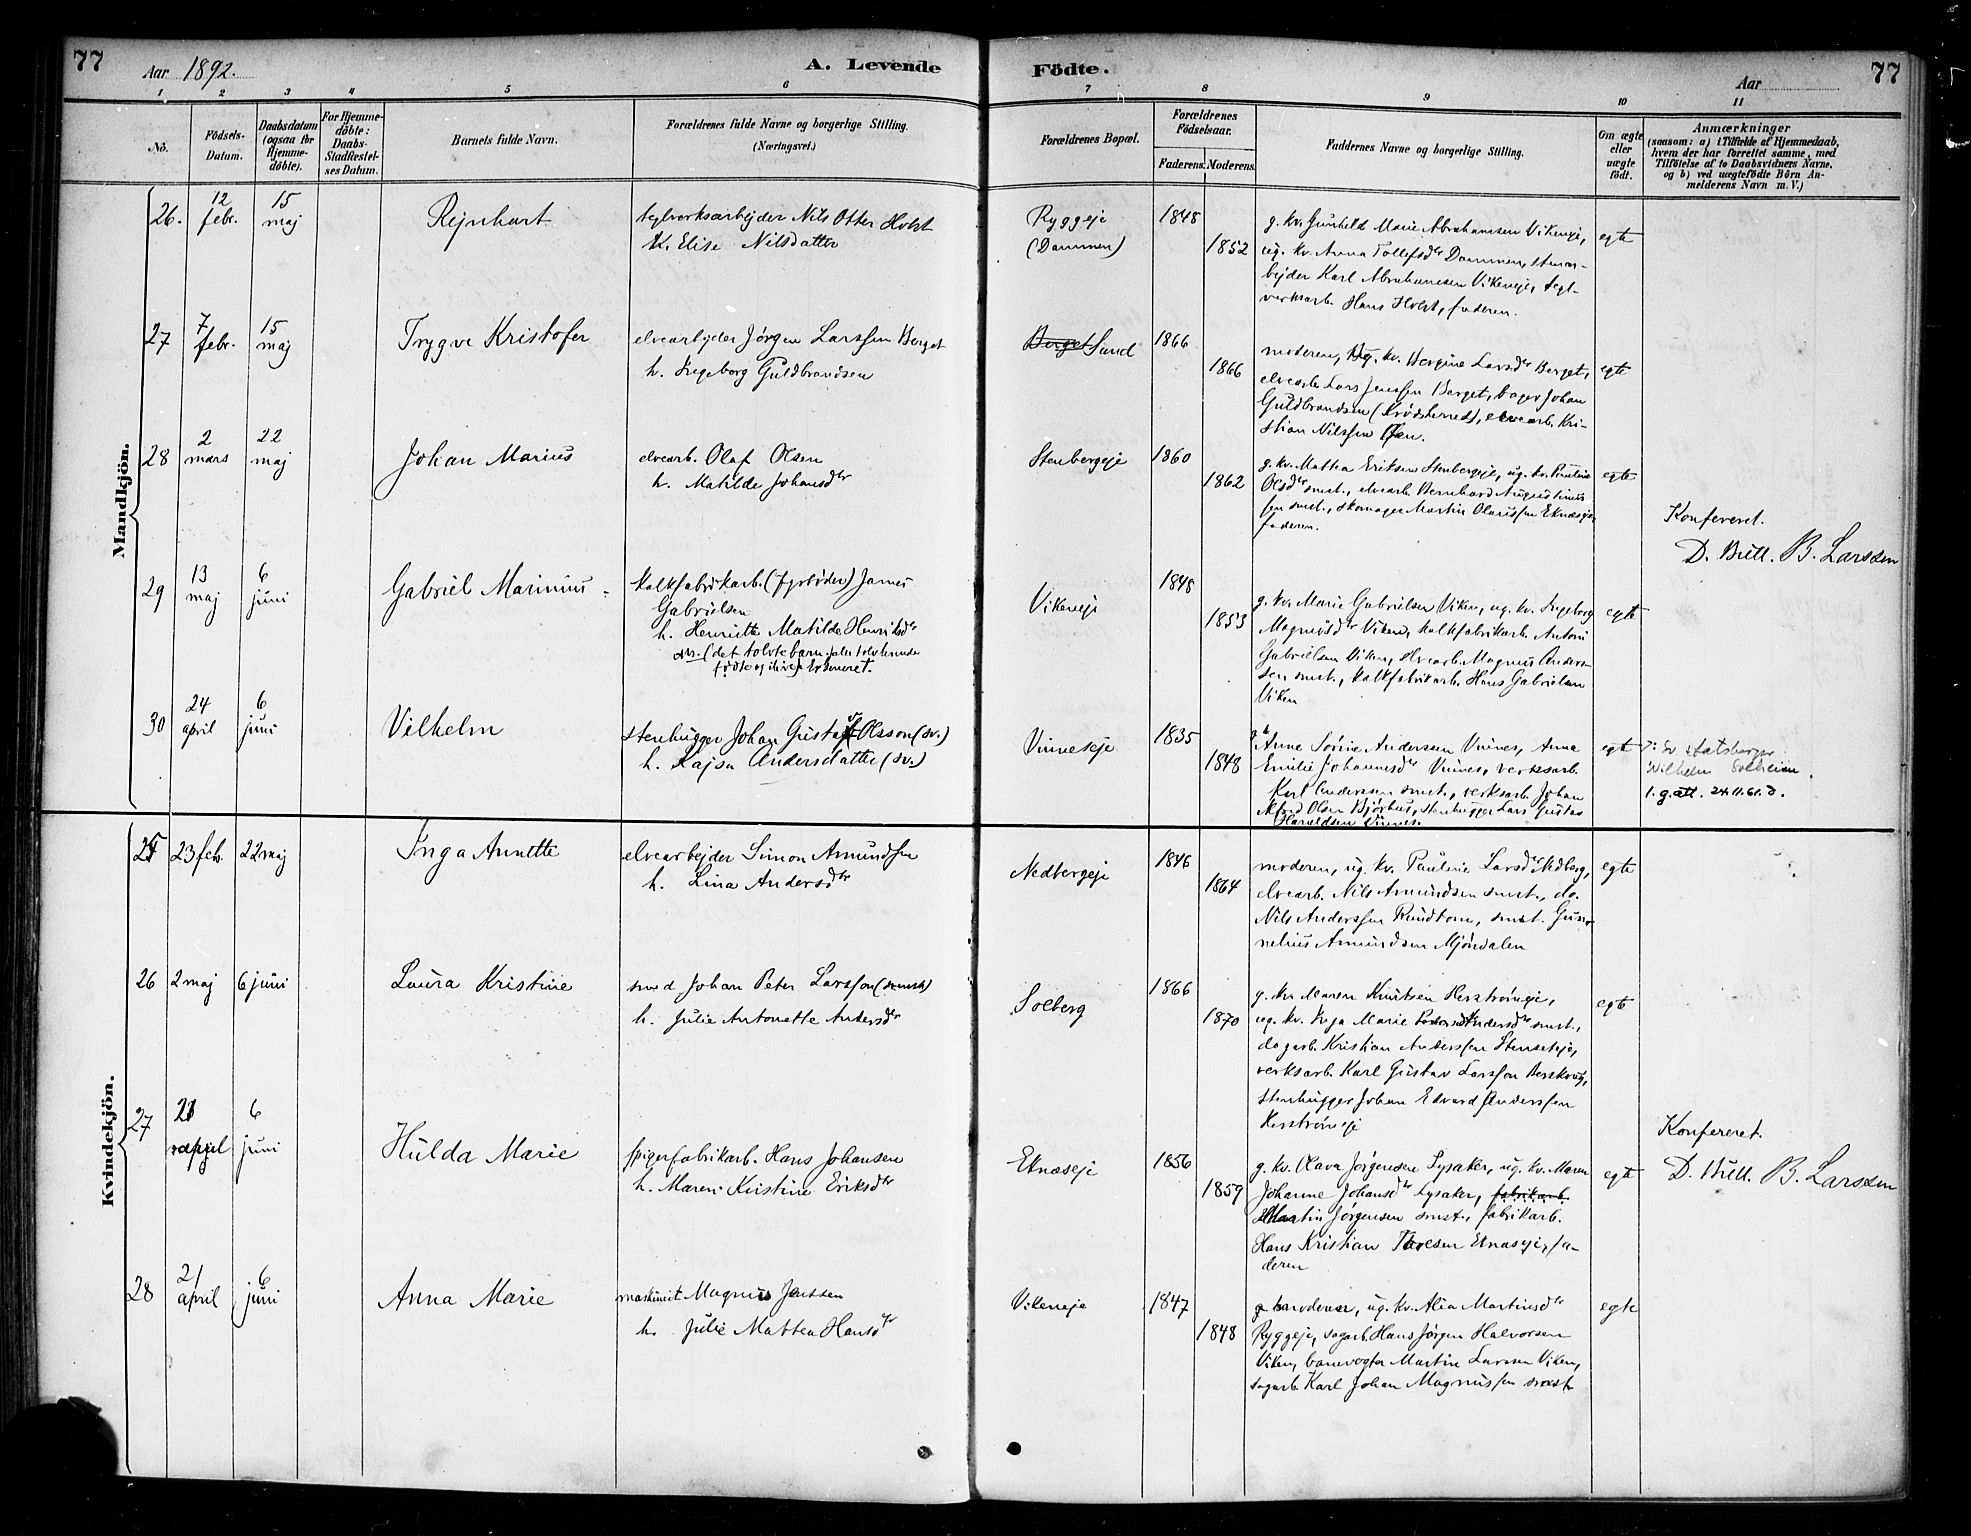 77
Aar 1892.
A. Levende
Födte.
Aar
77
1 2 3 4 5 6 7 8 9 10 11
No.
Födsels-
Datum.
Daabsdatum
(ogsaa for
Hjemme-
döbte).
For Hjemme-
döbte:
Daabs-
Stadfæstel-
ses Datum.
Barnets fulde Navn.
Forældrenes fulde Navne og borgerlige Stilling.
(Næringsvei.)
Forældrenes Bopæl.
Forældrenes
Födselsaar.
Faderens. Moderens.
Faddernes Navne og borgerlige Stilling.
Om ægte
eller
uægte
födt.
Anmærkninger
(saasom: a) i Tilfælde af Hjemmedaab,
hvem der har forrettet samme, med
Tilföielse af to Daabsvidners Navne.
og b) ved uægtefödte Börn An-
melderens Navn m. V.)
Mandkjön.
26.
12
febr.
15
maj
Rejnhart
teglverksarbejder Nils Otter Holst
K. Elise Nilsdatter
Ryggeje
(Dammen)
1848
1852
g. kv. Gunhild Marie Abrahamsen Vikeneje,
ug. kv. Anna Tollefsdtr Dammen, stenar-
bejder Karl Abrahamsen Vikeneje, tegl-
verksarb. Hans Holst, faderen.
egte
27
7
febr.
15
maj
Trygve Kristofer
elvearbejder Jørgen Larssen Berget
h. Ingeborg Guldbrandsen
Berget Sand
1866
1866
moderen, ug. kv. Bergine Larsdtr Berget,
elvearb. Lars Jenssen Berget, bager Johan
Guldbrandsen (Krødsherred), elvearb. Kri-
stian Nilssen Øen.
egte
28
2
mars
22
maj
Johan Marius
elvearb. Olaf Olsen
h. Matilde Johansdtr
Stenbergeje
1860
1862
g. kv. Mattea Eriksen Stenbergeje, ug. kv. Pauline
Olsdtr smst., elvearb. Bernhard Augustinus
sen smst., skomager Martin Olaussen Eknæseje,
faderen.
egte
Konfereret.
D. Bull. B. Larssen
29
13
maj
6
juni
Gabriel Marinius
kalkfabrikarb. (fyrbøder) James
Gabrielsen
h. Henriette Matilde Henriksdtr
(det tolvte barn, alle tolv levende
fødte og i live) Er smeret.
Vikeneje
1848
1853
g. kv. Marie Gabrielsen Viken, ug. kv. Ingeborg
Magnusdtr Viken, kalkfabrikarb. Anton
Gabrielsen Viken, elvearb. Magnus Anders-
sen smst., kalkfabrikarb. Hans Gabrielsen
Viken
egte
30
24
april
6
juni
Vilhelm
stenhugger Johan Gustaf Olsson (sv.)
h. Kajsa Andersdatter (sv.)
Vinneseje
1835
1848
Anne Sørine Anderssen Vinnes, Anna
Emilie Johannesdtr Vinnes, verksarb.
Karl Anderssen smst., verksarb. Johan
Alfred Olsen Bjørhus, stenhugger Lars Gustav
Haraldsen Vinnes.
egte
statsborger
Wilhelm Solheim.
1. g. att. 24.11.61. D.
Kvindekjön.
25
23 feb.
22 maj
Inga Annette
elvearbejder Simon Amundsen
h. Lina Andersdtr
Nedbergeje
1846
1864
moderen, ug. kv. Pauline Larsdtr Nedberg,
elvearb. Nils Amundsen smst., do.
Nils Anderssen Rundtom, smst. Gun-
nelius Amundsen Mjøndalen
egte
26
2 maj
6 juni
Laura Kristine
smed Johan Peter Larsson (svensk)
h. Julie Antonette Andersdtr
Solberg
1866
1870
g. kv. Maren Knutsen Herstrømeje,
ug. kv. Inga Marie Andersdtr smst.,
dagarb. Kristian Anderssen Stenseteje,
verksarb. Karl Gustav Larsson Berskoug,
stenhugger Johan Edvard Anderssen
Herstrømeje
egte
27
21
april
6
juni
Hulda Marie
spigerfabrikarb. Hans Johansen
h. Maren Kristine Eriksdtr
Eknæseje
1856
1859
g. kv. Olava Jørgensen Lysaker, ug. kv. Maren
Johanne Johansdtr Lysaker, fabrikarb.
Martin Jørgensen smst., fabrikarb.
Hans Kristian Eknæseje, fa-
deren
egte
Konfereret.
D. Bull. B. Larssen
28
21
april
6
juni
Anna Marie
maskinist Magnus Jenssen
h. Julie Mattea Hansdtr
Vikeneje
1847
1848
moderen, ug. kv. Alia Martinsdtr
Ryggeje, sagarb. Hans Jørgen Halvorsen
Viken, banevogter Martin Larssen Viken,
sagarb. Karl Johan Magnussen smst
egte